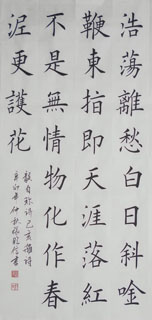 浩蕩離愁白日斜唫
鞭東指即天涯落紅
不是無情物化作春
泥更護花
龔自珍詩己亥雜詩
仲秋
書